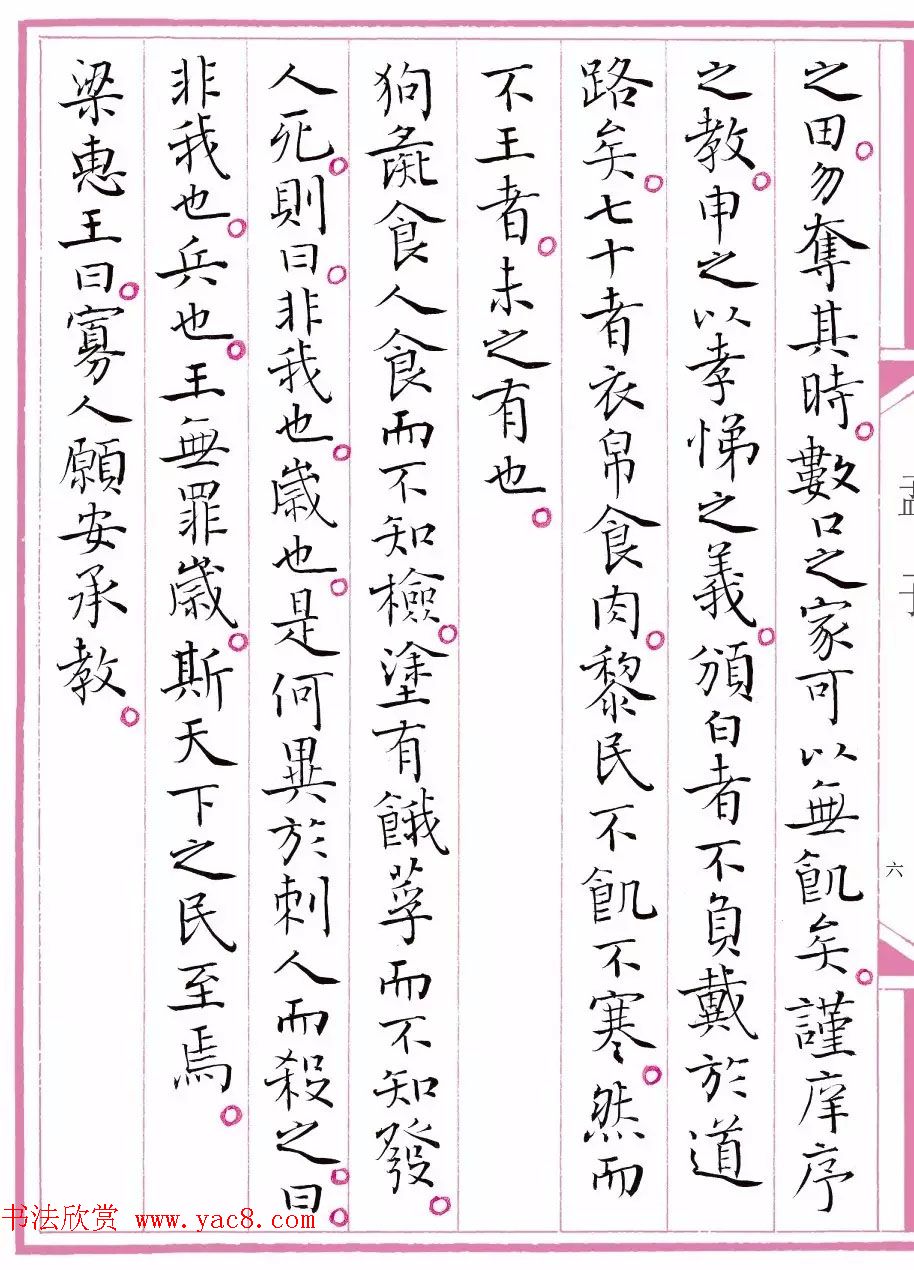 之田。勿奪其時。數口之家可以無飢矣。謹庠序
之教。申之以孝悌之義。頒白者不負戴於道
路矣。七十者衣帛食肉。黎民不飢不寒。然而
不王者。未之有也。
狗彘食人食而不知檢。塗有餓莩而不知發。
人死。則曰。非我也。歲也。是何異於刺人而殺之。曰。
非我也。兵也。王無罪歲。斯天下之民至焉。
梁惠王曰。寡人願安承教。
孟子
六
书法欣赏 www.yac8.com